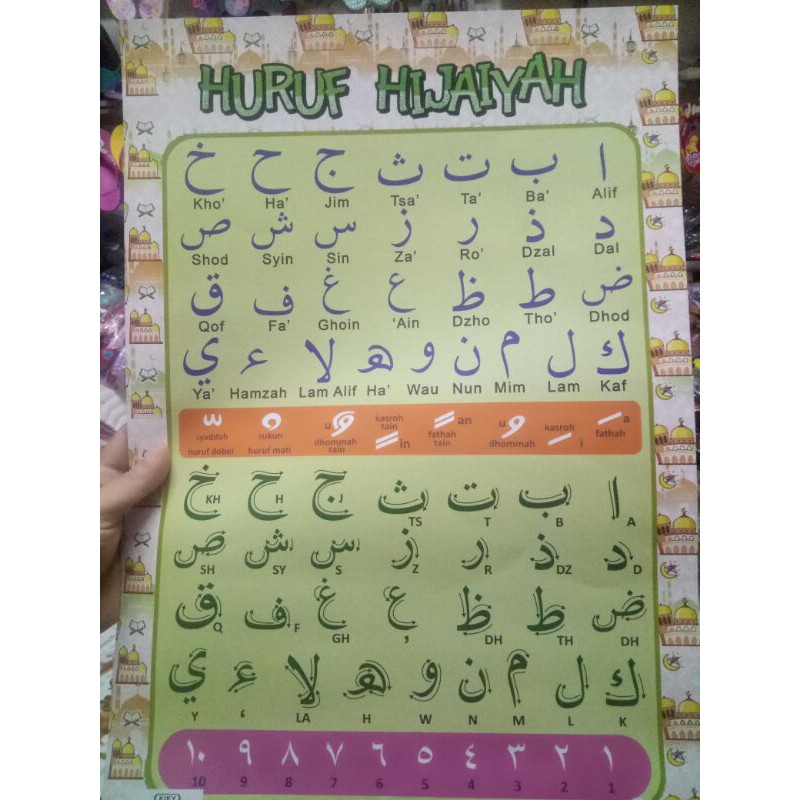 HURUF HIJAIYAH
ا ب ت ث ج ح خ
Alif Ba' Ta' Tsa' Jim Ha' Kho'
د ذ ر ز س ش ص
Dal Dzal Ro' Za' Sin Syin Shod
ض ط ظ ع غ ف ق
Dhod Tho' Dzho 'Ain Ghoin Fa' Qof
ك ل م ن و ه لا ء ي
Kaf Lam Mim Nun Wau Ha' Lam Alif Hamzah Ya'
a fathah
i kasroh
u dhommah
an fathah tain
in kasroh tain
u dhommah tain
sukun huruf mati
syaddah huruf dobel
ا ب ت ث ج ح خ
A B T TS J H KH
د ذ ر ز س ش ص
D DZ R Z S SY SH
ض ط ظ ع غ ف ق
DH TH DH ’ GH F Q
ك ل م ن و ه لا ء ي
K L M N W H LA ‘ Y
١ ٢ ٣ ٤ ٥ ٦ ٧ ٨ ٩ ١٠
1 2 3 4 5 6 7 8 9 10
KIKY